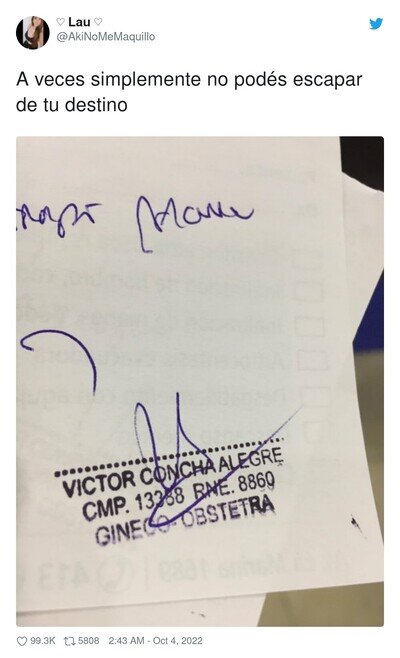 ♡ Lau ♡
@AkiNoMeMaquillo
A veces simplemente no podés escapar
de tu destino
VICTOR CONCHA ALEGRE
CMP. 13368 RNE. 8860
GINECO-OBSTETRA
99.3K 5808 2:43 AM - Oct 4, 2022